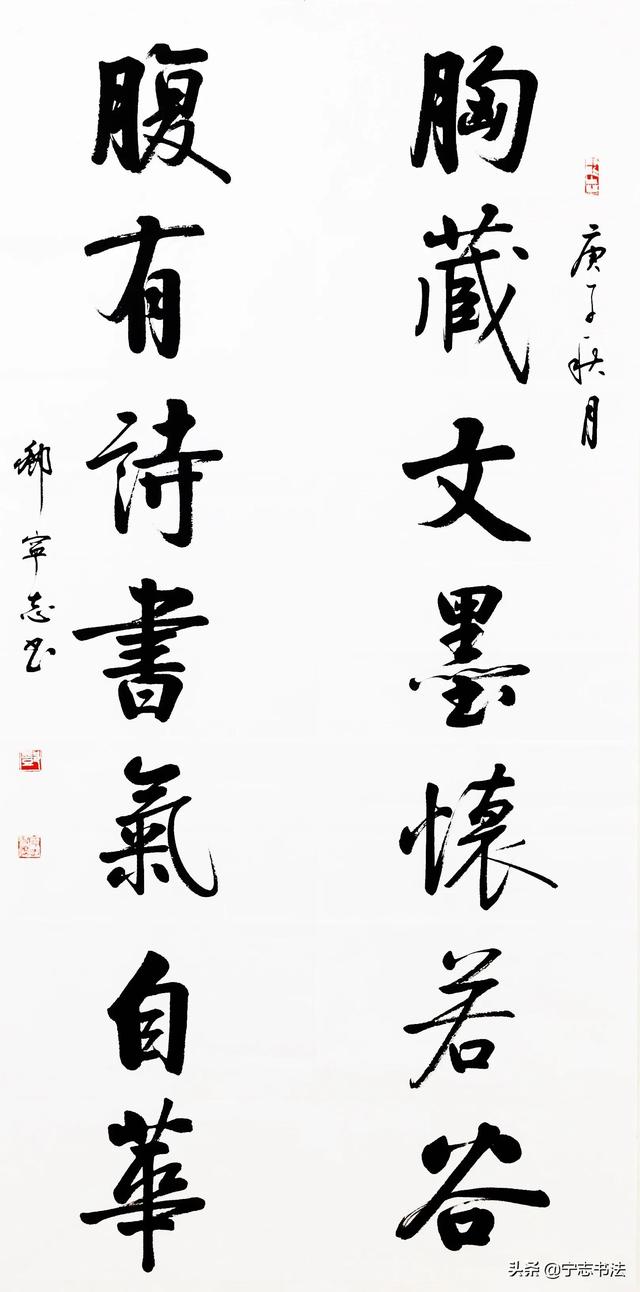 庚子秋月
胸藏文墨懷若谷
腹有詩書氣自華
寧志书
头条 @宁志书法